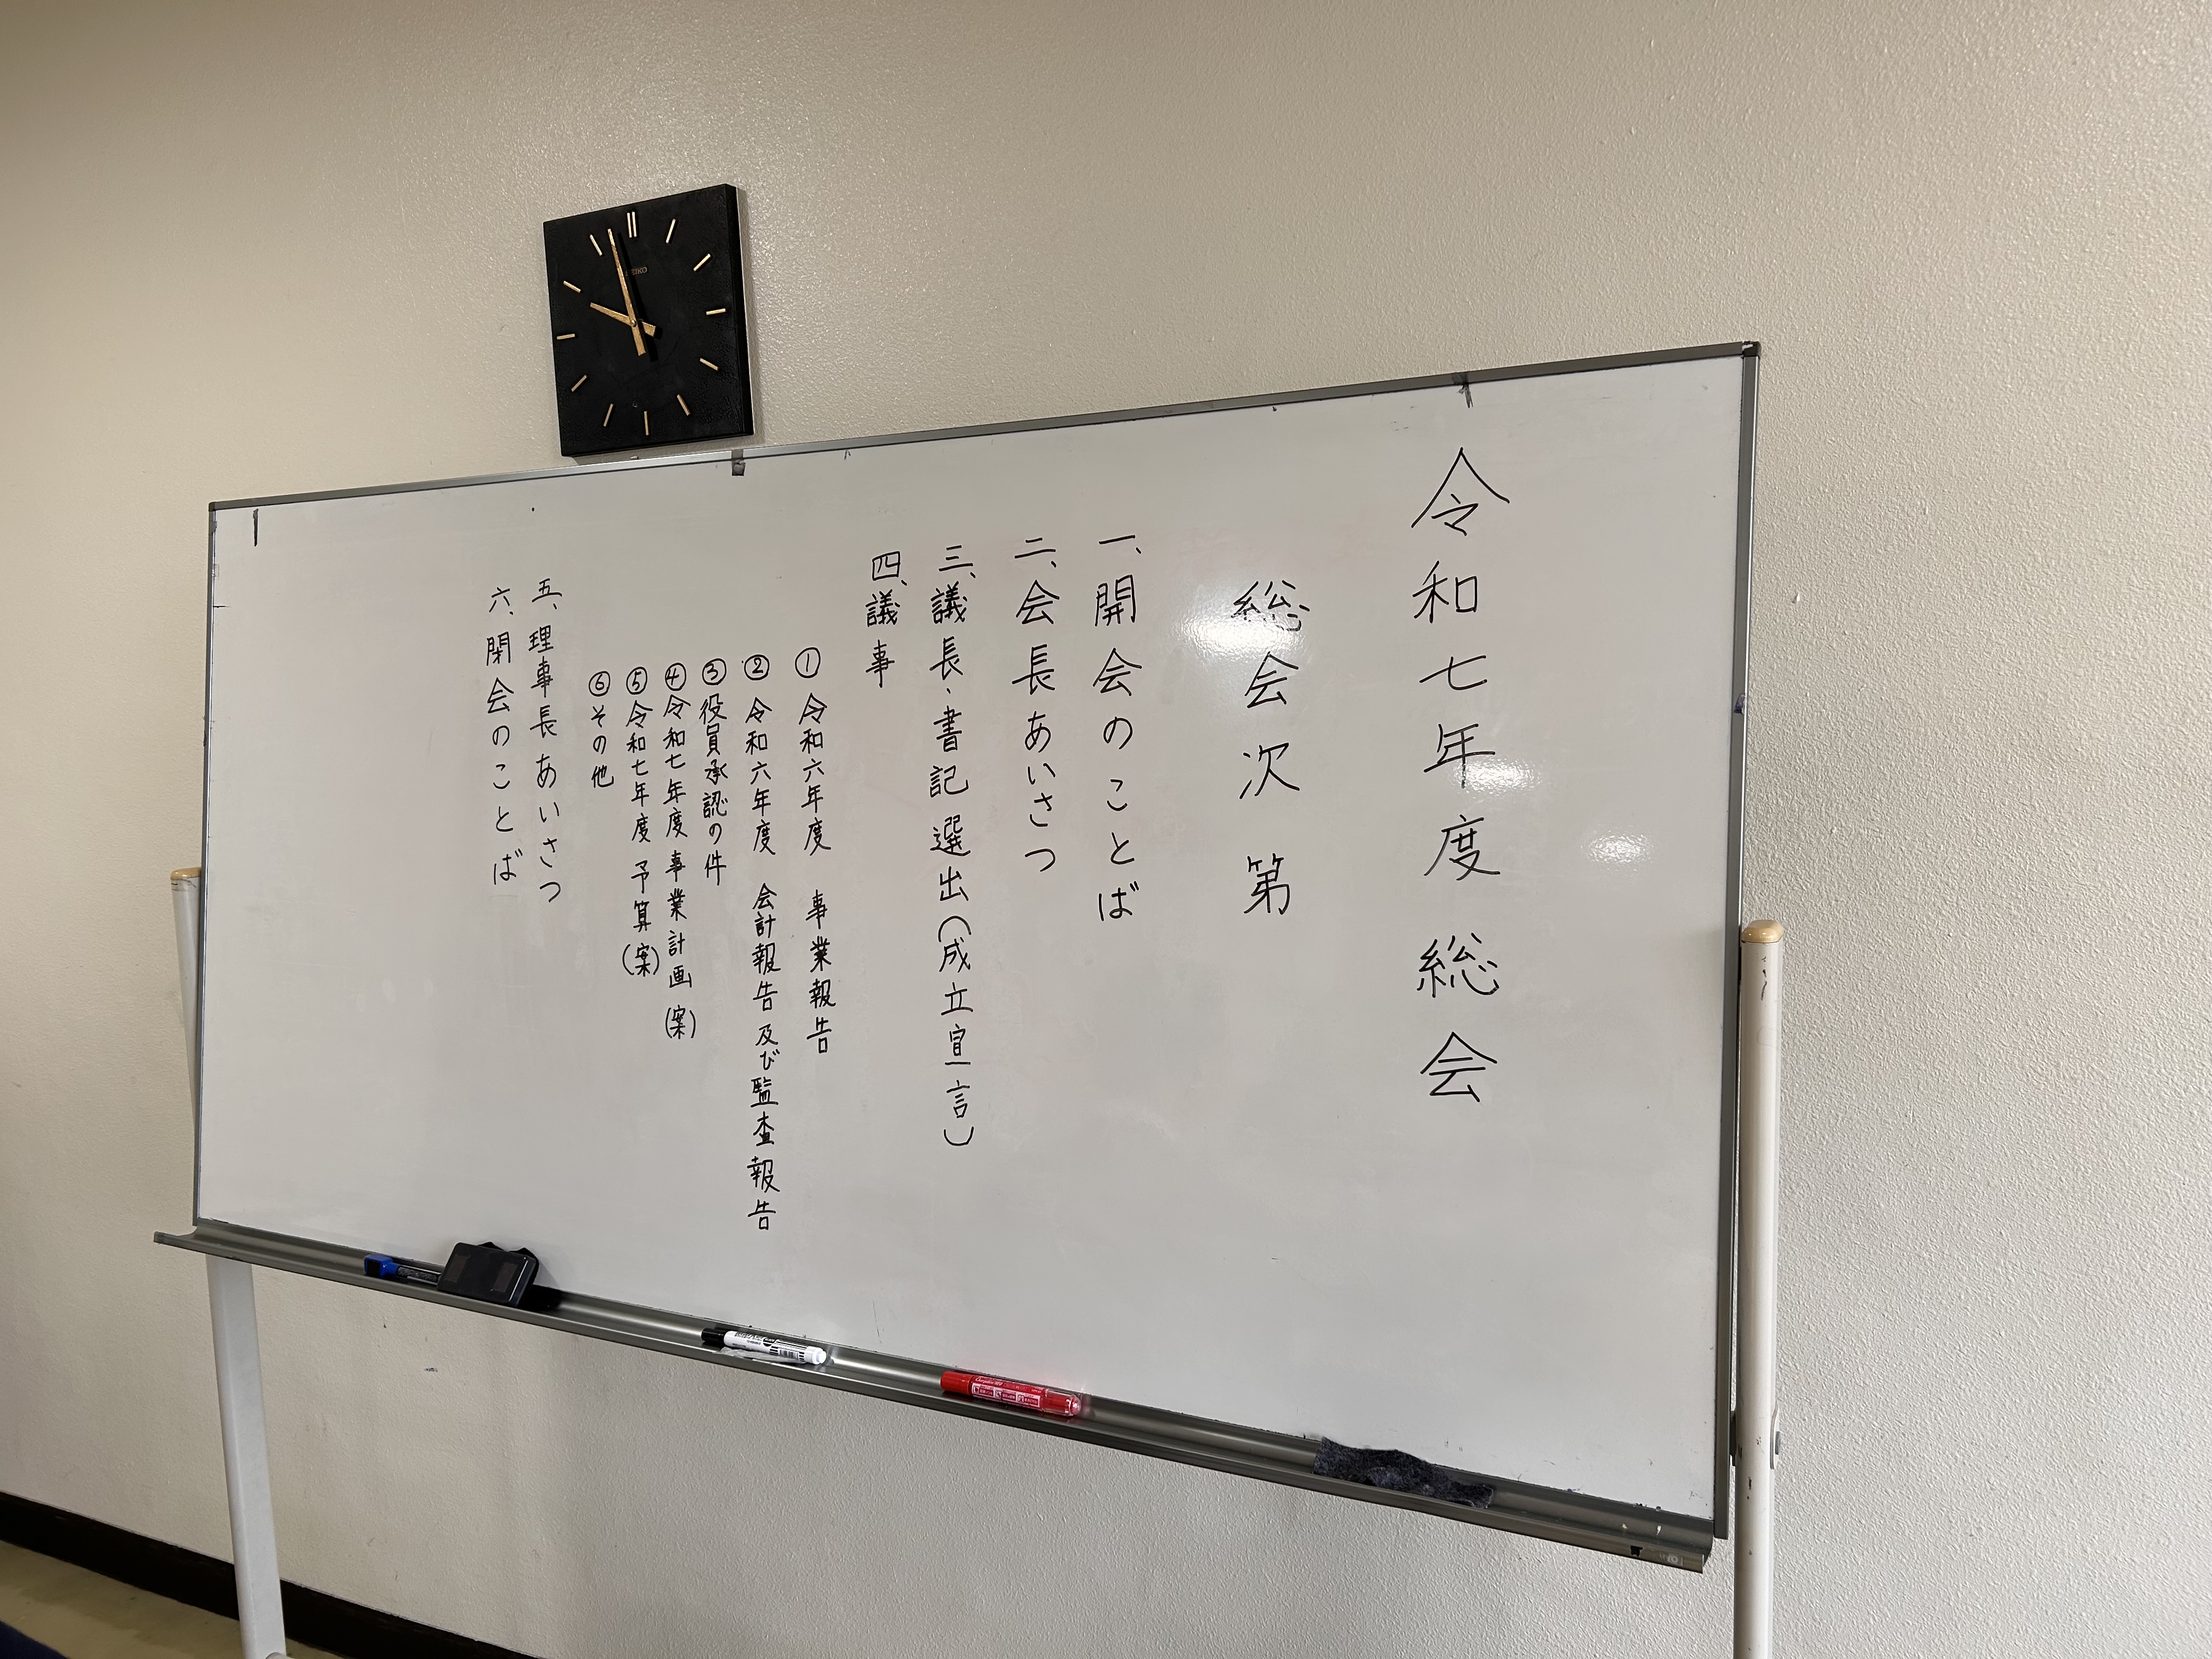 令和七年度総会
総会次第
一、開会のことば
二、会長あいさつ
三、議長、書記選出(成立宣言)
四、議事
① 令和六年度 事業報告
② 令和六年度 会計報告及び監査報告
③ 役員承認の件
④ 令和七年度 事業計画(案)
⑤ 令和七年度 予算(案)
⑥ その他
五、理事長あいさつ
六、閉会のことば